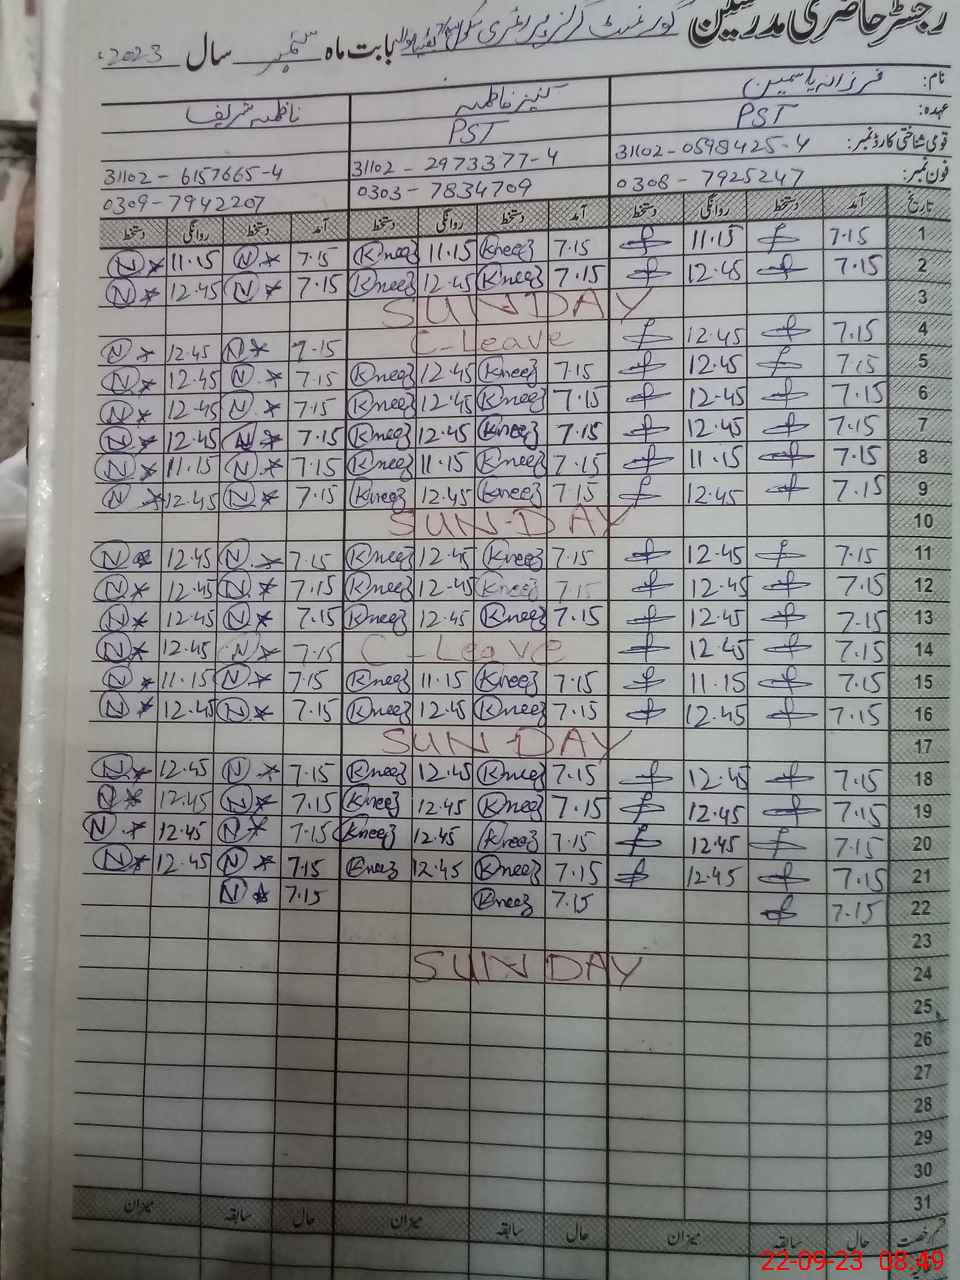 رجسٹر حاضری مدرسین گورنمنٹ گرلز پرائمری سکول بابت ماہ ستمبر سال 2023ء
نام: فرزانہ یاسمین کنیز فاطمہ ناظمہ شریف
عہدہ: PST PST
قومی شناختی کارڈ نمبر: 31102-0598425-4 31102-2973377-4 31102-6157665-4
فون نمبر: 0308-7925247 0303-7834709 0309-7942207
تاریخ آمد دستخط روانگی دستخط آمد دستخط روانگی دستخط آمد دستخط روانگی دستخط
1 7.15 11.15 7.15 Kneez 11.15 Kneez 7.15 N 11.15 N
2 7.15 12.45 7.15 Kneez 12.45 Kneez 7.15 N 12.45 N
3 SUNDAY
4 7.15 12.45 C-Leave 7.15 N 12.45 N
5 7.15 12.45 7.15 Kneez 12.45 Kneez 7.15 N 12.45 N
6 7.15 12.45 7.15 Kneez 12.45 Kneez 7.15 N 12.45 N
7 7.15 12.45 7.15 Kneez 12.45 Kneez 7.15 N 12.45 N
8 7.15 11.15 7.15 Kneez 11.15 Kneez 7.15 N 11.15 N
9 7.15 12.45 7.15 Kneez 12.45 Kneez 7.15 N 12.45 N
10 SUN-DAY
11 7.15 12.45 7.15 Kneez 12.45 Kneez 7.15 N 12.45 N
12 7.15 12.45 7.15 Kneez 12.45 Kneez 7.15 N 12.45 N
13 7.15 12.45 7.15 Kneez 12.45 Kneez 7.15 N 12.45 N
14 7.15 12.45 C-Leave 7.15 N 12.45 N
15 7.15 11.15 7.15 Kneez 11.15 Kneez 7.15 N 11.15 N
16 7.15 12.45 7.15 Kneez 12.45 Kneez 7.15 N 12.45 N
17 SUN-DAY
18 7.15 12.45 7.15 Kneez 12.45 Kneez 7.15 N 12.45 N
19 7.15 12.45 7.15 Kneez 12.45 Kneez 7.15 N 12.45 N
20 7.15 12.45 7.15 Kneez 12.45 Kneez 7.15 N 12.45 N
21 7.15 12.45 7.15 Kneez 12.45 Kneez 7.15 N 12.45 N
22 7.15 7.15 Kneez 7.15 N
23
24 SUNDAY
25
26
27
28
29
30
31
قسم رخصت حال سابقہ میزان حال سابقہ میزان حال سابقہ میزان
22-09-23 08:49